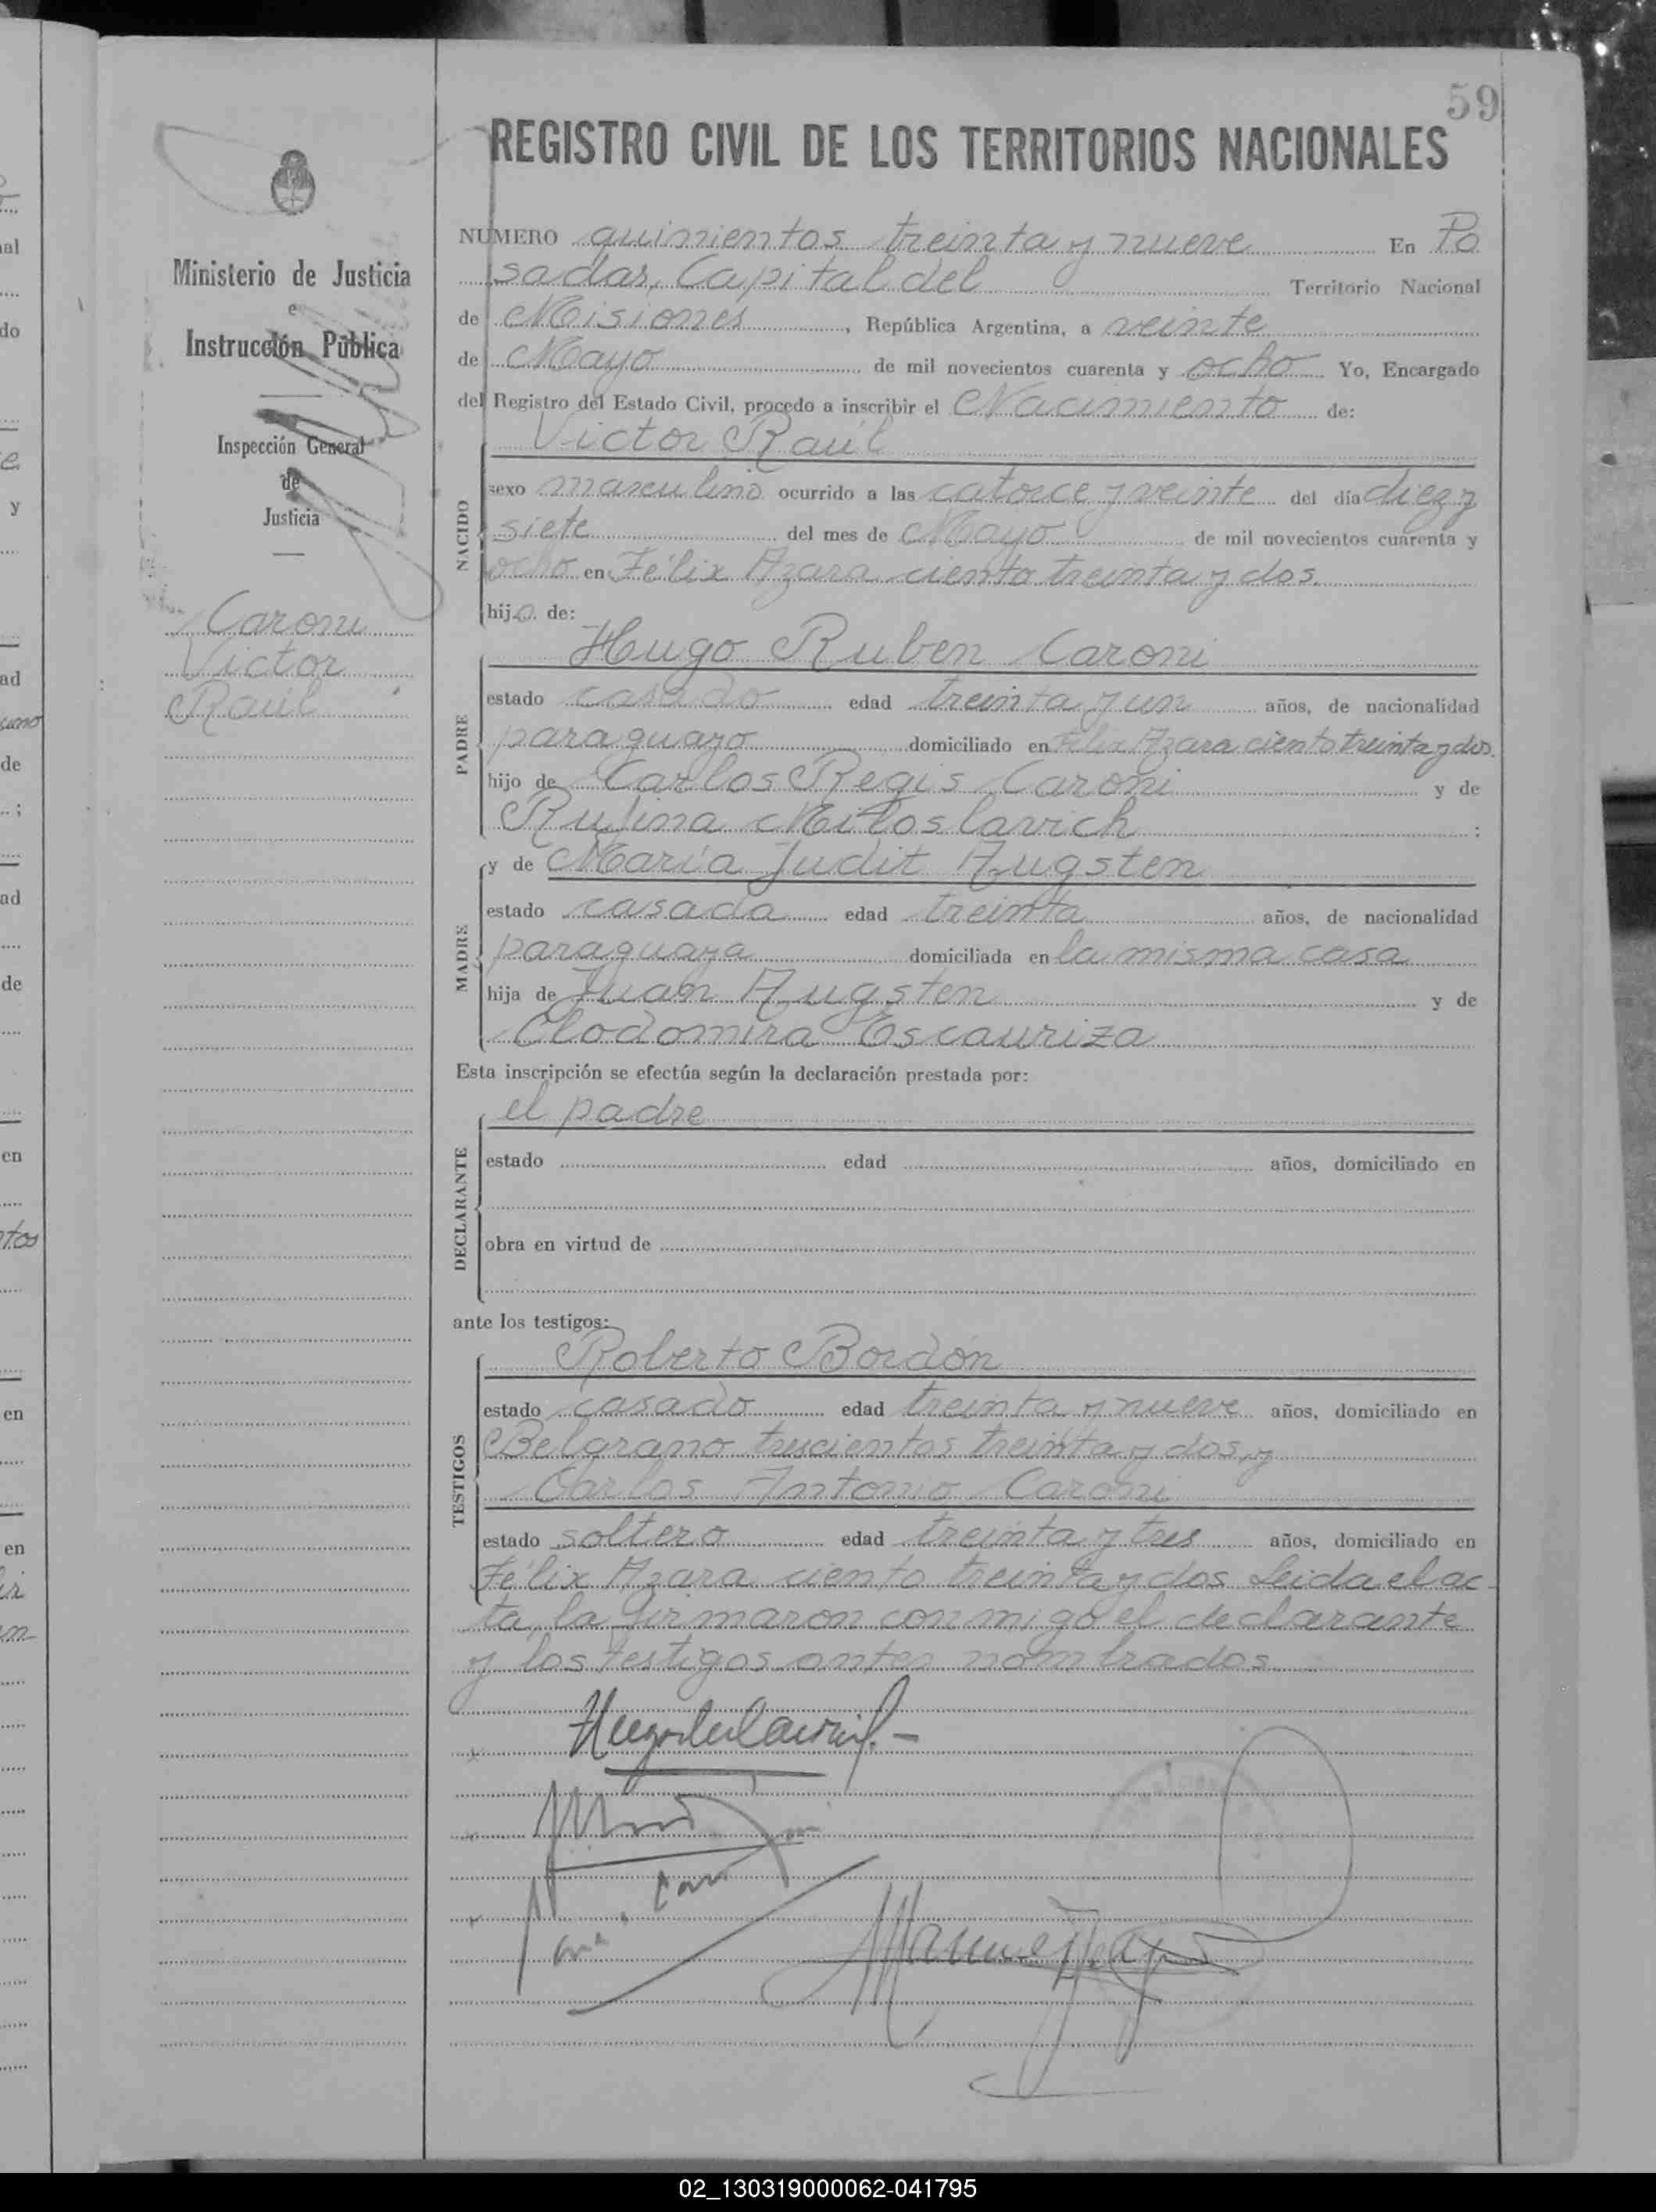 59
REGISTRO CIVIL DE LOS TERRITORIOS NACIONALES
Ministerio de Justicia
e
Instrucción Pública
Inspección General
de
Justicia
Caroni
Victor
Raúl
NUMERO quinientos treinta y nueve En Po
sadas, Capital del Territorio Nacional
de Misiones, República Argentina, a veinte
de Mayo de mil novecientos cuarenta y ocho Yo, Encargado
del Registro del Estado Civil, procedo a inscribir el Nacimiento de:
Victor Raúl
NACIDO
sexo masculino ocurrido a las catorce y veinte del día diez y
siete del mes de Mayo de mil novecientos cuarenta y
ocho en Félix Azara ciento treinta y dos.
hijo de:
Hugo Ruben Caroni
PADRE
estado casado edad treinta y un años, de nacionalidad
paraguayo domiciliado en Félix Azara ciento treinta y dos.
hijo de Carlos Regis Caroni y de
Rufina Miloslavich ;
MADRE
y de María Judit Augsten
estado casada edad treinta años, de nacionalidad
paraguaya domiciliada en la misma casa
hija de Juan Augsten y de
Clodomira Escauriza
Esta inscripción se efectúa según la declaración prestada por:
el padre
DECLARANTE
estado edad años, domiciliado en
obra en virtud de
ante los testigos:
Roberto Bordón
TESTIGOS
estado casado edad treinta y nueve años, domiciliado en
Belgrano trescientos treinta y dos, y
Carlos Antonio Caroni
estado soltero edad treinta y tres años, domiciliado en
Félix Azara ciento treinta y dos Leida el ac-
ta, la firmaron conmigo el declarante
y los testigos antes nombrados
02_130319000062-041795